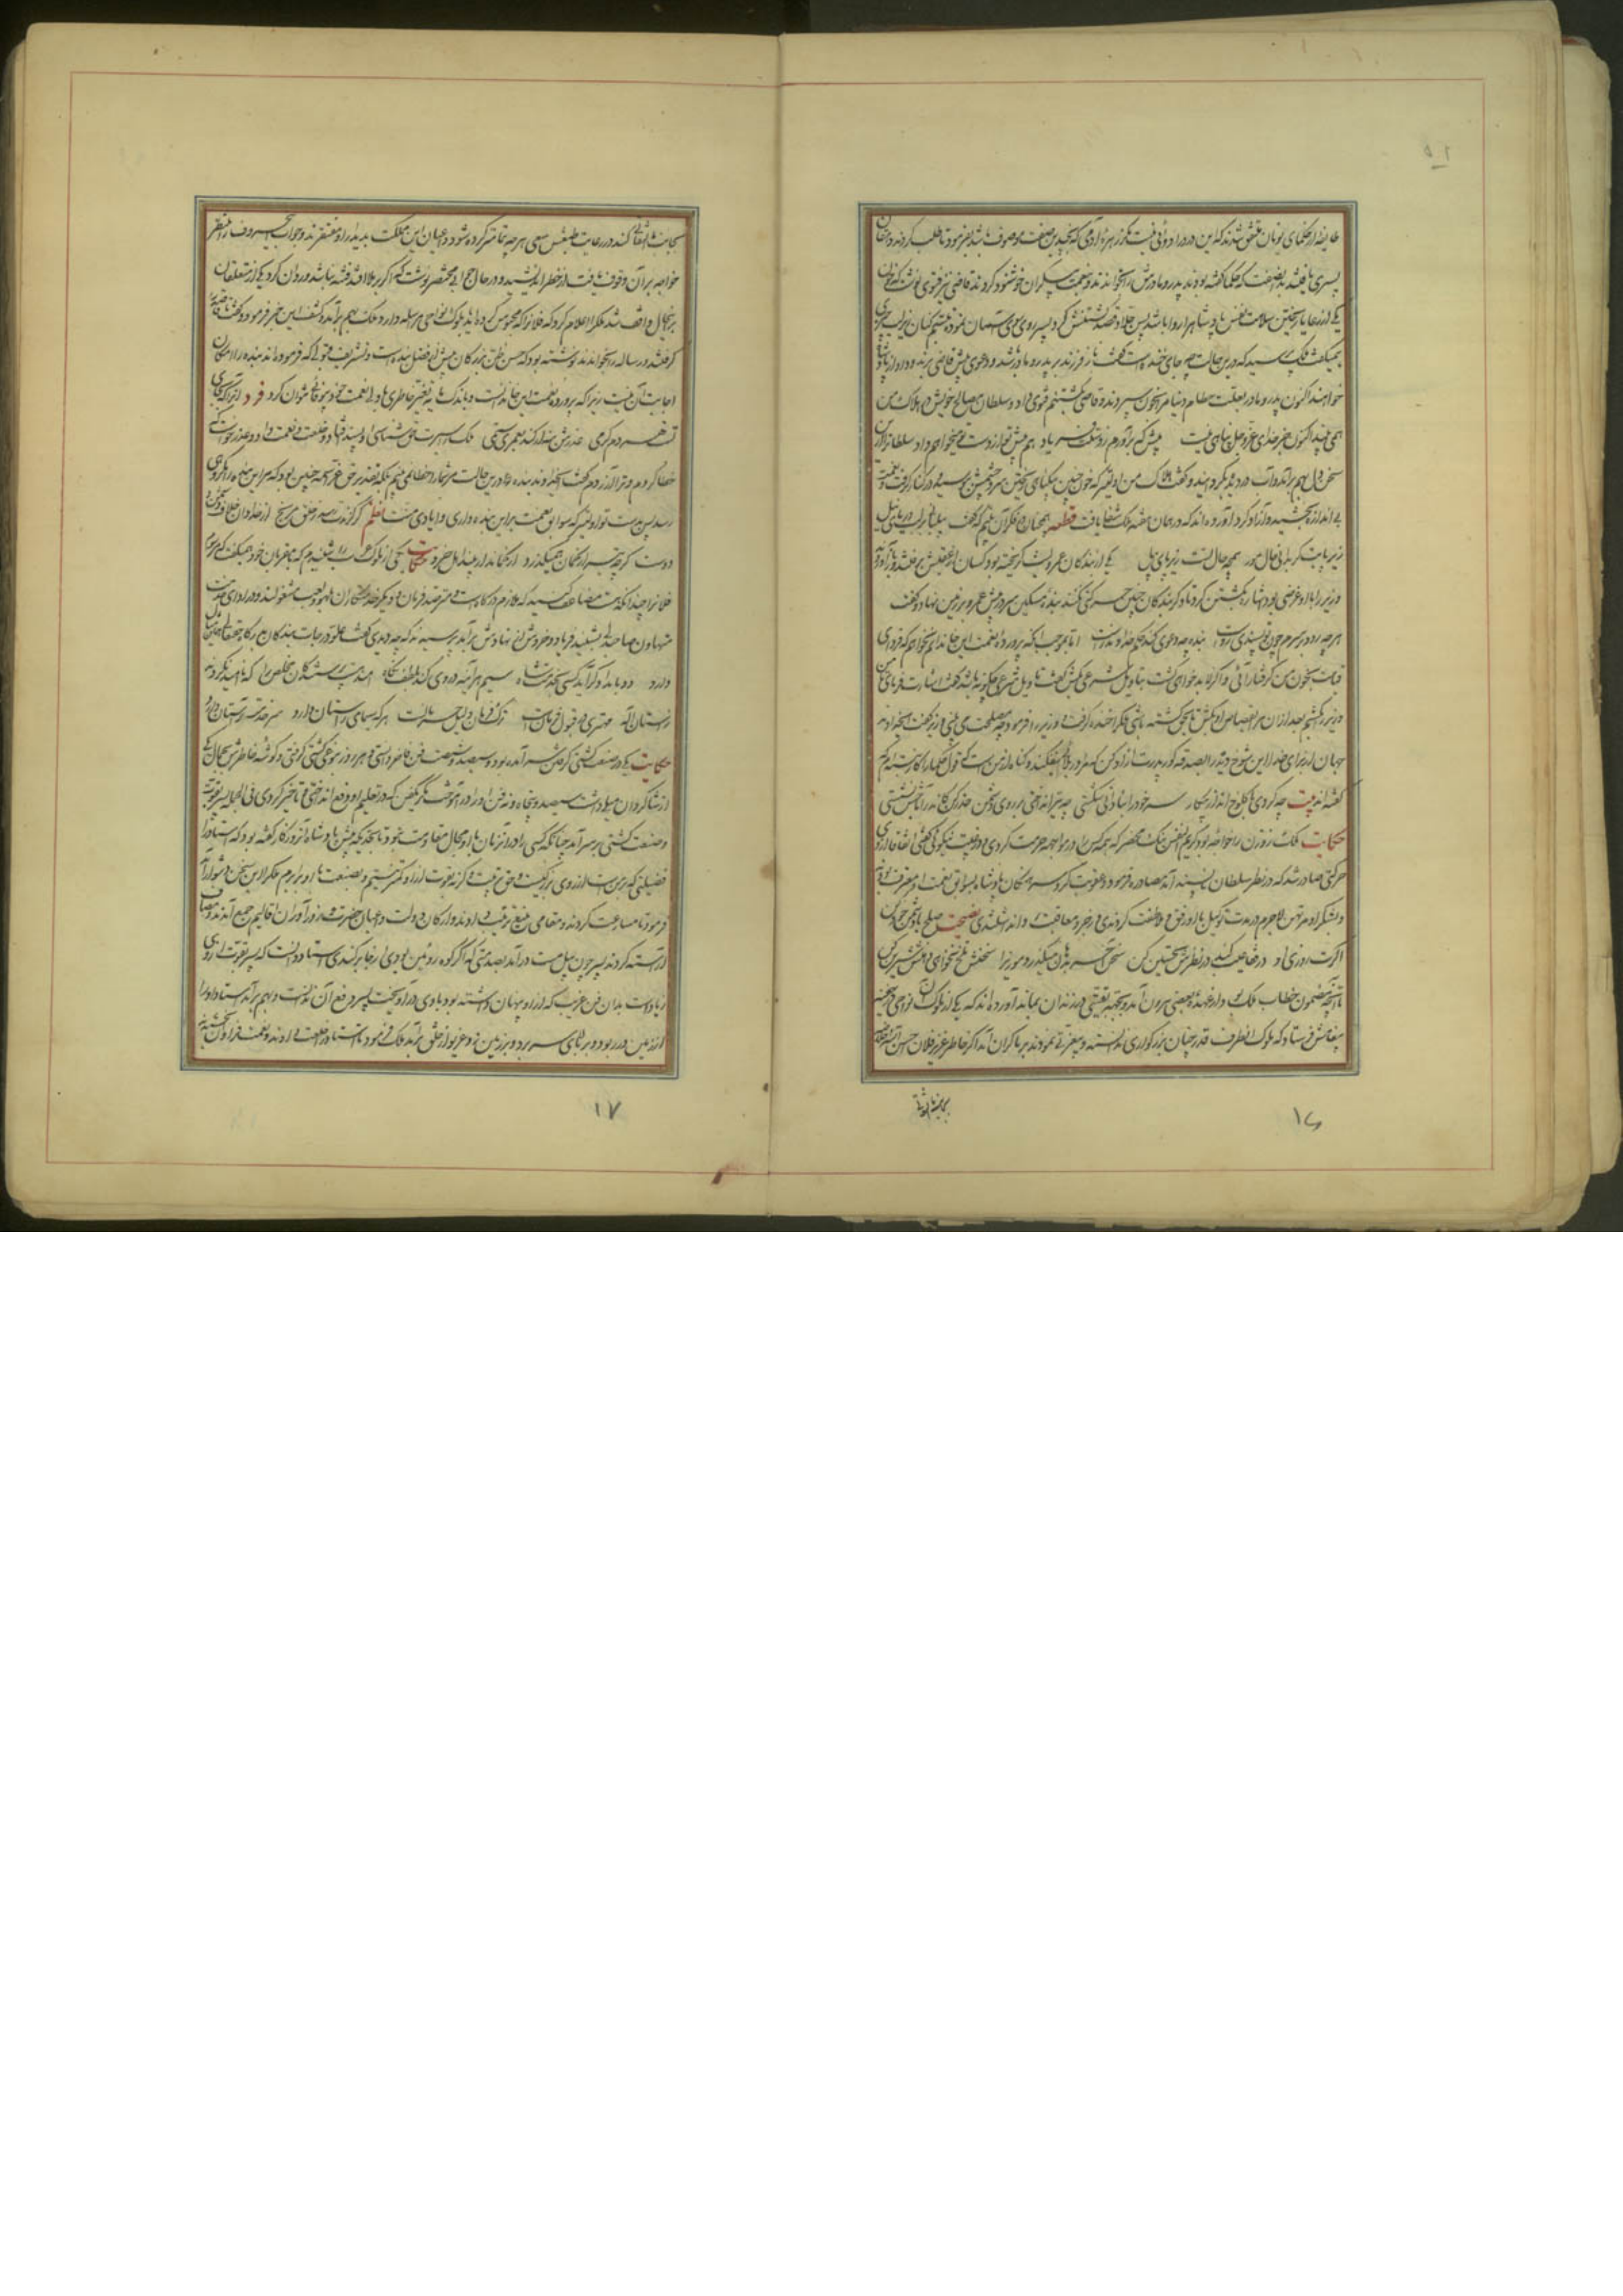 طایفه از حکمای یونان متفق شدند که این درد را دوائی نیست مگر زهره آدمی که بچندین صفت موصوف باشد بفرمود تا طلب کردند دهقان
پسری یافتند بدان صفت که حکما گفته بودند پدر و مادرش را بخواندند و بنعمت بیکران خوشنود کردند و قاضی نیز فتوی نوشت که خون
یکی از رعایا ریختن سلامت نفس پادشاه را روا باشد پس جلاد قصد کشتنش کرد پسر روی سوی آسمان نمود و تبسم کنان زیر لب چیزی
همیگفت ملک پرسید که درین حالت چه جای خنده است گفت ناز فرزند بر پدر و مادر باشد و دعوی پیش قاضی برند و داد از پادشاه
خواهند اکنون پدر و مادر بعلت حطام دنیا مرا بخون سپردند و قاضی بکشتنم فتوی داد و سلطان مصالح خویش در هلاک من
همی بیند اکنون بجز خدای عزوجل پناهی نیست پیش که برآورم ز دستت فریاد هم پیش تو از دست تو میخواهم داد سلطان را ازین
سخن دل بهم برآمد و آب در دیده بگردانید و گفت هلاک من اولیتر که خون چنین بیگناهی ریختن سر و چشمش ببوسید و در کنار گرفت و نعمت
بی اندازه بخشید و آزاد کرد و آورده اند که در همان هفته ملک شفا یافت قطعه همچنان در فکر آن بیتم که گفت پیلبانی بر لب دریای نیل
زیر پایت گر بدانی حال مور همچو حال تست زیر پای پیل یکی از بندگان عمرولیث گریخته بود کسان از عقبش برفتند و باز آوردند
وزیر را با او غرضی بود اشاره بکشتن کرد تا دگر بندگان چنین حرکتی نکنند بنده مسکین سر پیش عمرو بر زمین نهاد و گفت
هر چه رود بر سرم چون تو پسندی رواست بنده چه دعوی کند حکم خداوندراست اما بموجب آنکه پرورده نعمت این خاندانم نخواهم که فردای
قیامت بخون من گرفتار آئی و اگر بنده خواهی کشت بتاویل شرعی بکش گفت تاویل شرعی چگونه باشد گفت اشارت فرمای تا من
وزیر را بکشم بعد از آن مرا بقصاص او بکش تا بحق کشته باشی ملک را خنده گرفت وزیر را فرمود چه مصلحت می بینی وزیر گفت ای خداوند
جهان از برای خدا این شوخ دیده را بصدقه گور پدرت آزاد کن که مرا در بلا نیفکند و گناه از من است که قول حکما را کار نبستم که
گفته اند بیت چو کردی با کلوخ انداز پیکار سر خود را بنادانی شکستی چو تیر انداختی بر روی دشمن حذر کن کاندر آماجش نشستی
حکایت ملک زوزن را خواجه بود کریم النفس نیک محضر که همه کس را در مواجهه حرمت کردی و در غیبت نیکوئی گفتی اتفاقا از وی
حرکتی صادر شد که در نظر سلطان ناپسند آمد مصادره فرمود و عقوبت کرد سرهنگان پادشاه بسوابق نعمت او معترف بودند
و بشکر او مرتهن لاجرم در مدت توکیل با او رفق و ملاطفت کردندی و زجر و معاقبت روا نداشتندی نصیحت صلح با دشمن خود کن
اگرت روزی او در قفا عیب کند در نظرش تحسین کن سخن آخر بدهان میگذرد موذیرا سخنش تلخ نخواهی دهنش شیرین کن
تا آنچه مضمون خطاب ملک بود از عهده بعضی بیرون آمد و ببقیتی در زندان بماند آورده اند که یکی از ملوک نواحی در خفیه
پیغامش فرستاد که ملوک آنطرف قدر چنان بزرگواری ندانستند و بیعزتی نمودند بر ما گران آمد اگر خاطر عزیز فلان احسن الله خلاصه
بجانب ما التفاتی
۱۶
بجانب ما التفاتی کند در رعایت خاطرش سعی هر چه تمامتر کرده شود و اعیان این مملکت بدیدار او مفتقرند و جواب این حروف را منتظر
خواجه بر آن وقوف یافت از خطر اندیشید و در حال جوابی مختصر نوشت که اگر برملا افتد فتنه نباشد و روان کرد یکی از متعلقان
برینحال واقف شد ملک را اعلام کرد که فلانرا که محبوس کرده با ملوک نواحی مراسله دارد ملک بهم برآمد و کشف این خبر فرمود قاصد را
گرفتند و رساله را بخواندند نوشته بود که حسن ظن بزرگان بیش از فضل بنده است و تشریف قبولی که فرموده اند بنده را امکان
اجابت آن نیست زیرا که پرورده نعمت این خاندانست و باندک مایه تغیر خاطری با ولی نعمت خود بیوفائی نتوان کرد فرد آنرا که بجای
تست هر دم کرمی عذرش بنه ار کند بعمری ستمی ملک را سیرت حق شناسی او پسند افتاد و خلعت و نعمت داد و عذر خواست که
خطا کردم و ترا آزردم گفت ای خداوند بنده درین حالت مر شما را خطائی نمی بینم بلکه تقدیر حق عز اسمه چنین بود که مر این بنده را مکروهی
رسد پس بدست تو اولیتر که سوابق نعمت بر این بنده داری و ایادی منت نظم گر گزندت رسد ز خلق مرنج از خدا دان خلاف دشمن و
دوست گر چه تیر از کمان همیگذرد از کماندار بیند اهل خرد حکایت یکی از ملوک عرب شنیدم که با مقربان خود همیگفت که مرسوم
فلانرا چندانکه هست مضاعف کنید که ملازم درگاه است و مترصد فرمان و دیگر خدمتگاران بلهو و لعب مشغولند و در ادای خدمت
متهاون صاحبدلی بشنید فریاد و خروش از نهادش برآمد پرسیدند که چه دیدی گفت علو درجات بندگان بدرگاه حقتعالی همین مثال
دارد دو بامداد گر آید کسی بخدمت شاه سیم هر آینه در وی کند بلطف نگاه امید هست پرستندگان مخلص را که ناامید نگردند
ز آستان اله مهتری در قبول فرمانست ترک فرمان دلیل حرمانست هر که سیمای راستان دارد سر خدمت بر آستان دارد
حکایت یکی در صنعت کشتی گرفتن بسر آمده بود و سیصد و شصت فن فاخر دانستی و هر روز بنوعی کشتی گرفتی و گوشه خاطرش بجمال یکی
از شاگردان میل داشت سیصد و پنجاه و نه فن او را در آموخت مگر یکفن که در تعلیم او دفع انداختی و تاخیر کردی فی الجمله پسر بقوت
و صنعت کشتی بسر آمد چنانکه کسی را در آنزمان با او مجال مقاومت نبود تا بحدیکه پیش پادشاه آنروزگار گفته بود که استاد را
فضیلتی که بر من است از روی بزرگیست و حق تربیت و گر نه بقوت از او کمتر نیستم و بصنعت با او برابرم ملک را این سخن دشوار آمد
فرمود تا مصارعت کردند و مقامی متسع ترتیب دادند و ارکان دولت و اعیان حضرت و زورآوران اقالیم جمع آمدند و مصاف
آراسته کردند پسر چون پیل مست درآمد بصدمتی که اگر کوه روئین بودی از جا برکندی استاد دانست که پسر بقوت از وی
زیادست بدان فن غریب که از او پنهان داشته بود با وی درآویخت پسر دفع آن ندانست و بهم برآمد استاد او را
از زمین در ربود و بر بالای سر برد و بر زمین زد و غریو از خلق برآمد ملک فرمود تا استاد را خلعت دادند و نعمت فراوان بخشیدند
۱۷